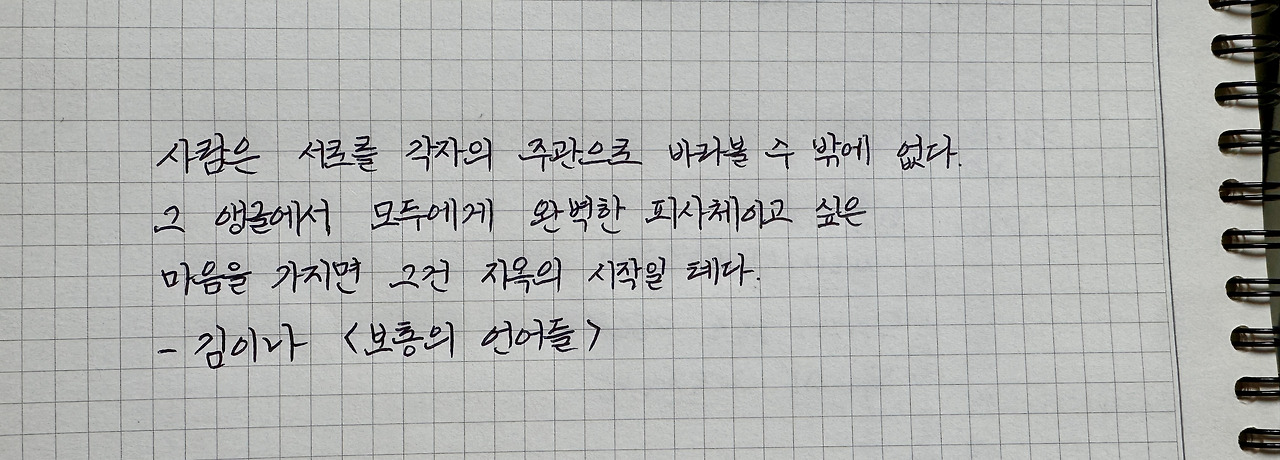 사람은 서로를 각자의 주관으로 바라볼 수 밖에 없다.
그 앵글에서 모두에게 완벽한 피사체이고 싶은
마음을 가지면 그건 지옥의 시작일 테다.
- 김이나 <보통의 언어들>